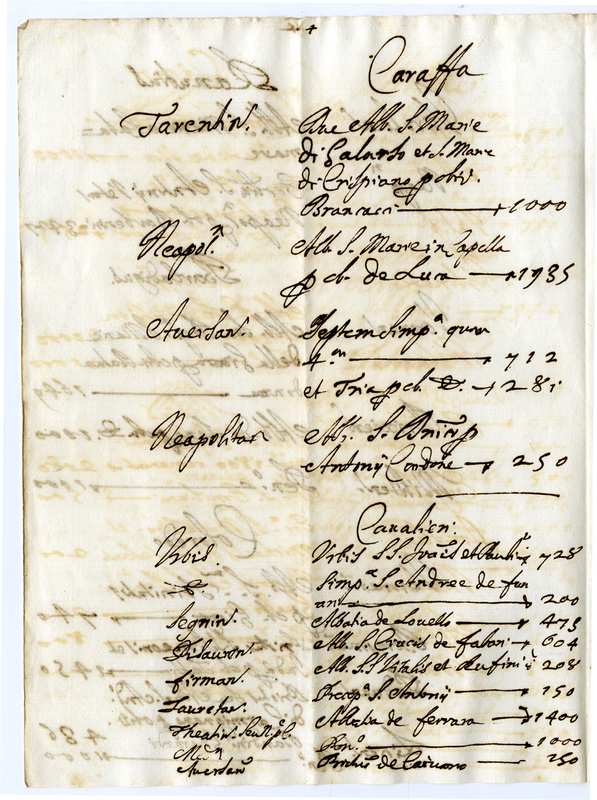 4
Caraffa
Tarentin. Due Alb. S. Marie
di Galarso et S. Marie
di Crispiano p obit.
Brancacci 1000
Neapol. Alb. S. Marie in Capella
p cb. de Luca 1935
Aversan. Septem simp.
4. 712
et Tria p cb. D. 281
Neapolitan Alb. S.
Antonij Cordone 250
Cavalieri.
Urbis. Urbis SS. Joañis et Pauli 728
D. Simp. S. Andree de fun
ari 200
Segnin. Abbatia de Lovello 475
Pisauron. Alb. S. Crucis de fabari 604
firman. Alb. SS Vitalis et Ruffini 208
Lauretan. Precep. S. Antonij 150
Abbatia de ferrara 1400
Theatin. 1000
Aversan 250